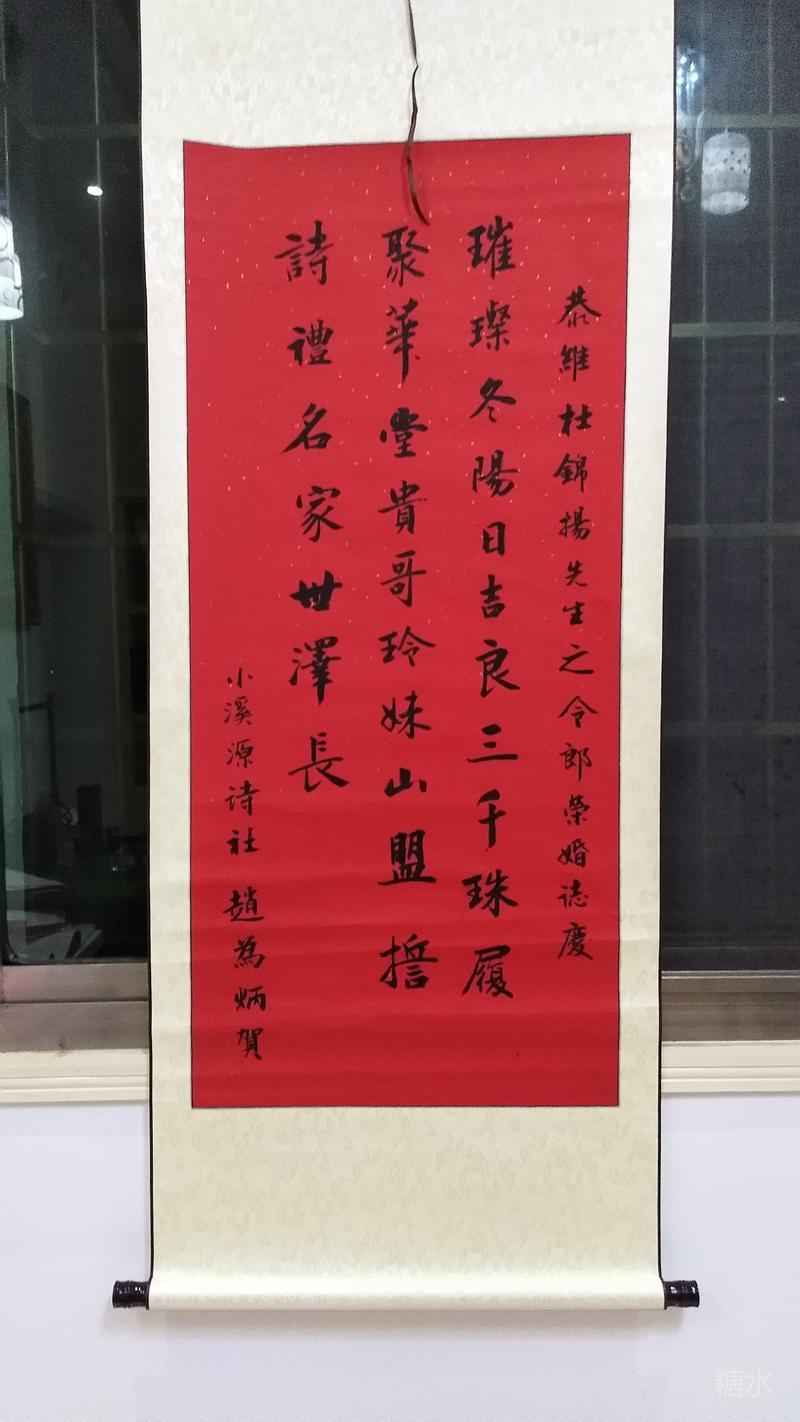 恭維杜錦揚先生之令郎榮婚誌慶
璀璨冬陽日吉良三千珠履
聚華堂貴哥玲妹山盟誓
詩禮名家世澤長
小溪源诗社 趙為炳賀
糖水